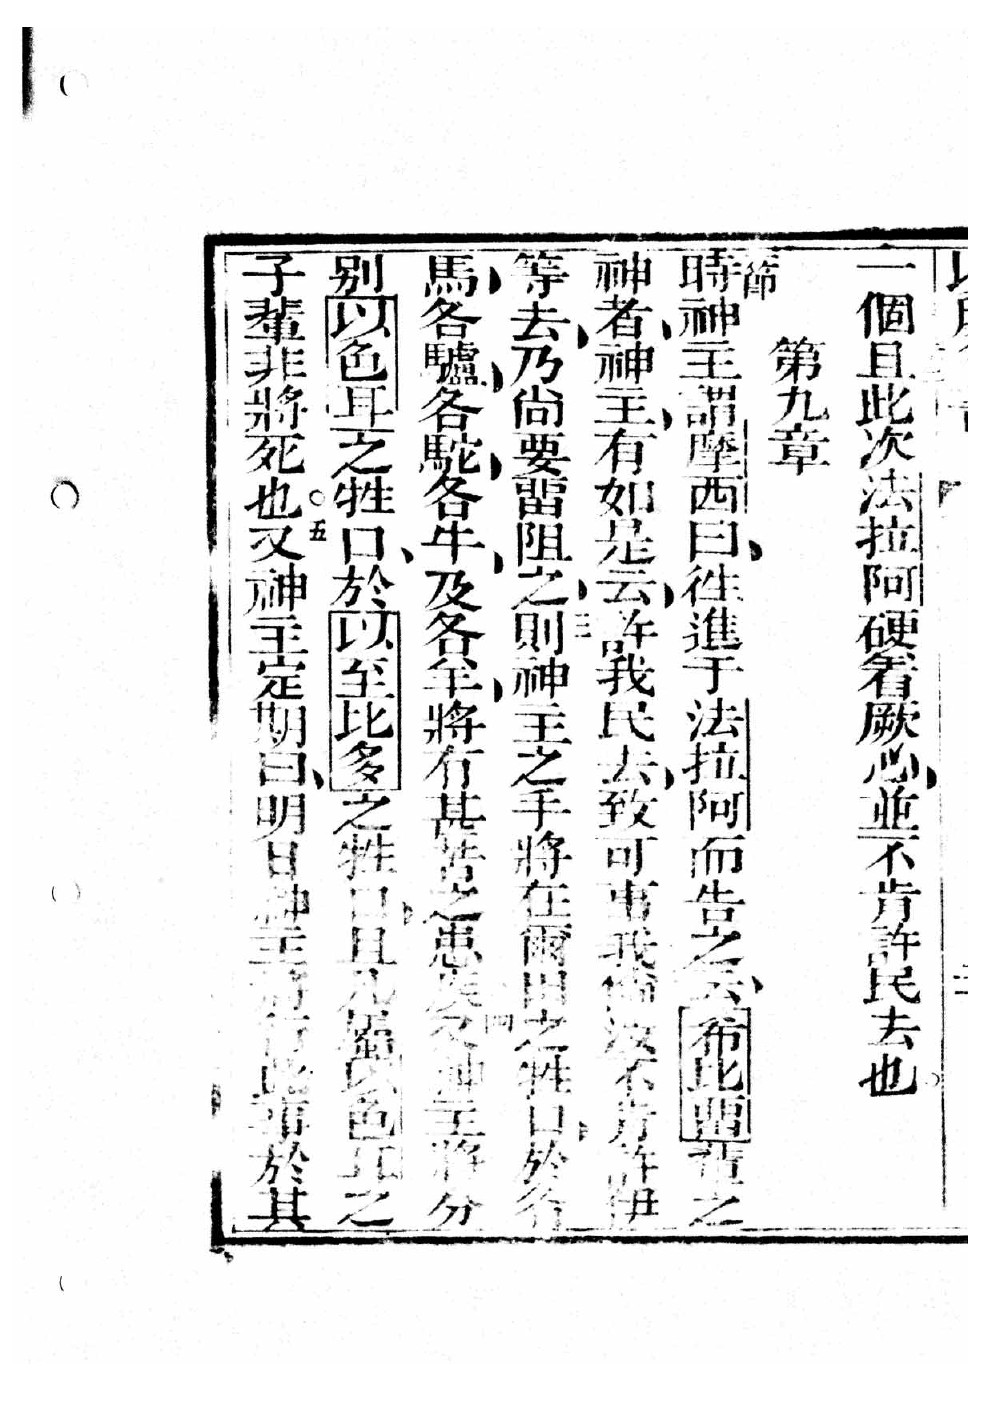 一個且此次法拉阿硬着厥心並不肯許民去也
第九章
節
時神主謂摩西曰徃進于法拉阿而告之云布比畱軰之
神者神主有如是云許我民去致可事我倘汝不肯許伊
等去乃尚要畱阻之三則神主之手將在爾田之牲口於各
馬各驢各駝各牛及各羊將有甚苦之患矣四又神主將分
别以色耳之牲口於以至比多之牲口且凡屬以色耳之
子輩非將死也五又神主定期曰明日神主將行此事於其